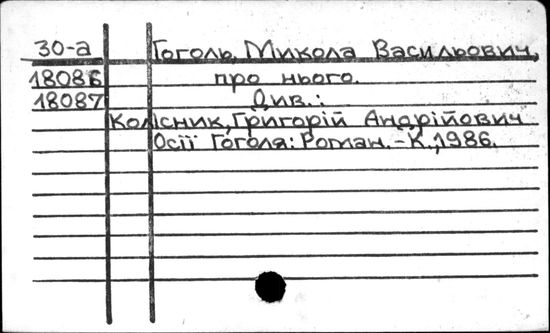 30-а Гоголь, Микола Васильович,
18086 про нього.
18087 Див.:
Колісник, Григорій Андрійович
Осії Гоголя: Роман. - К., 1986.